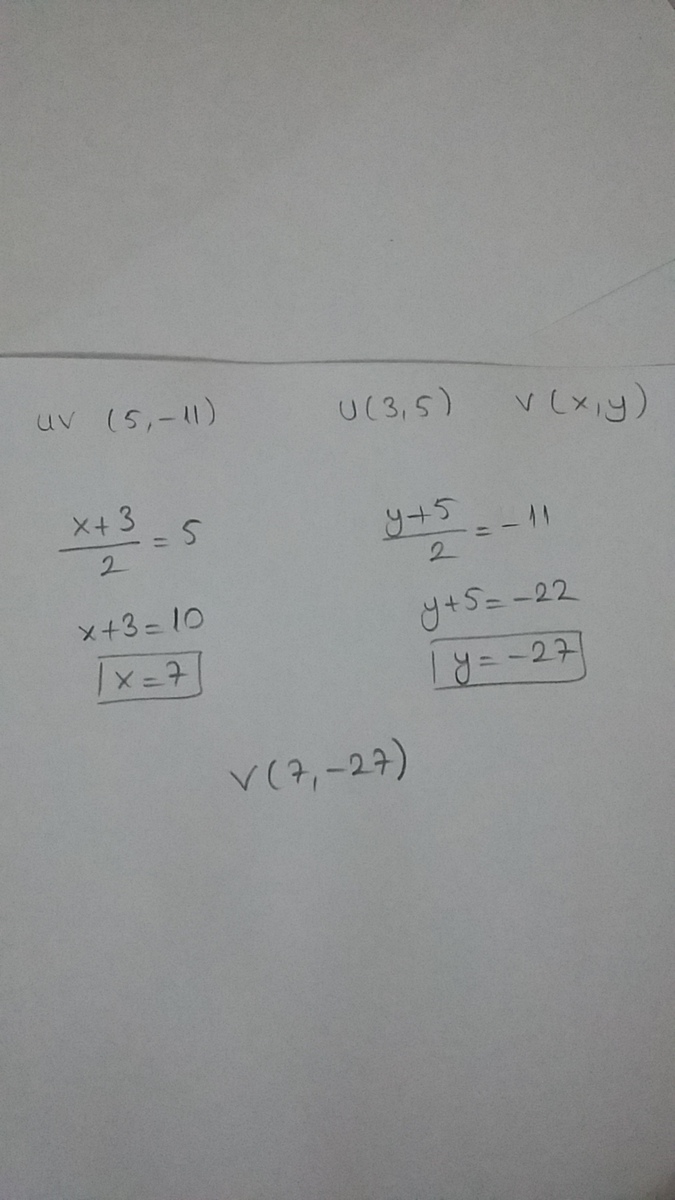 uv (5,-11) U(3,5) V(x,y)
x+3/2 = 5
x+3=10
x=7
y+5/2 = -11
y+5=-22
y=-27
V(7,-27)